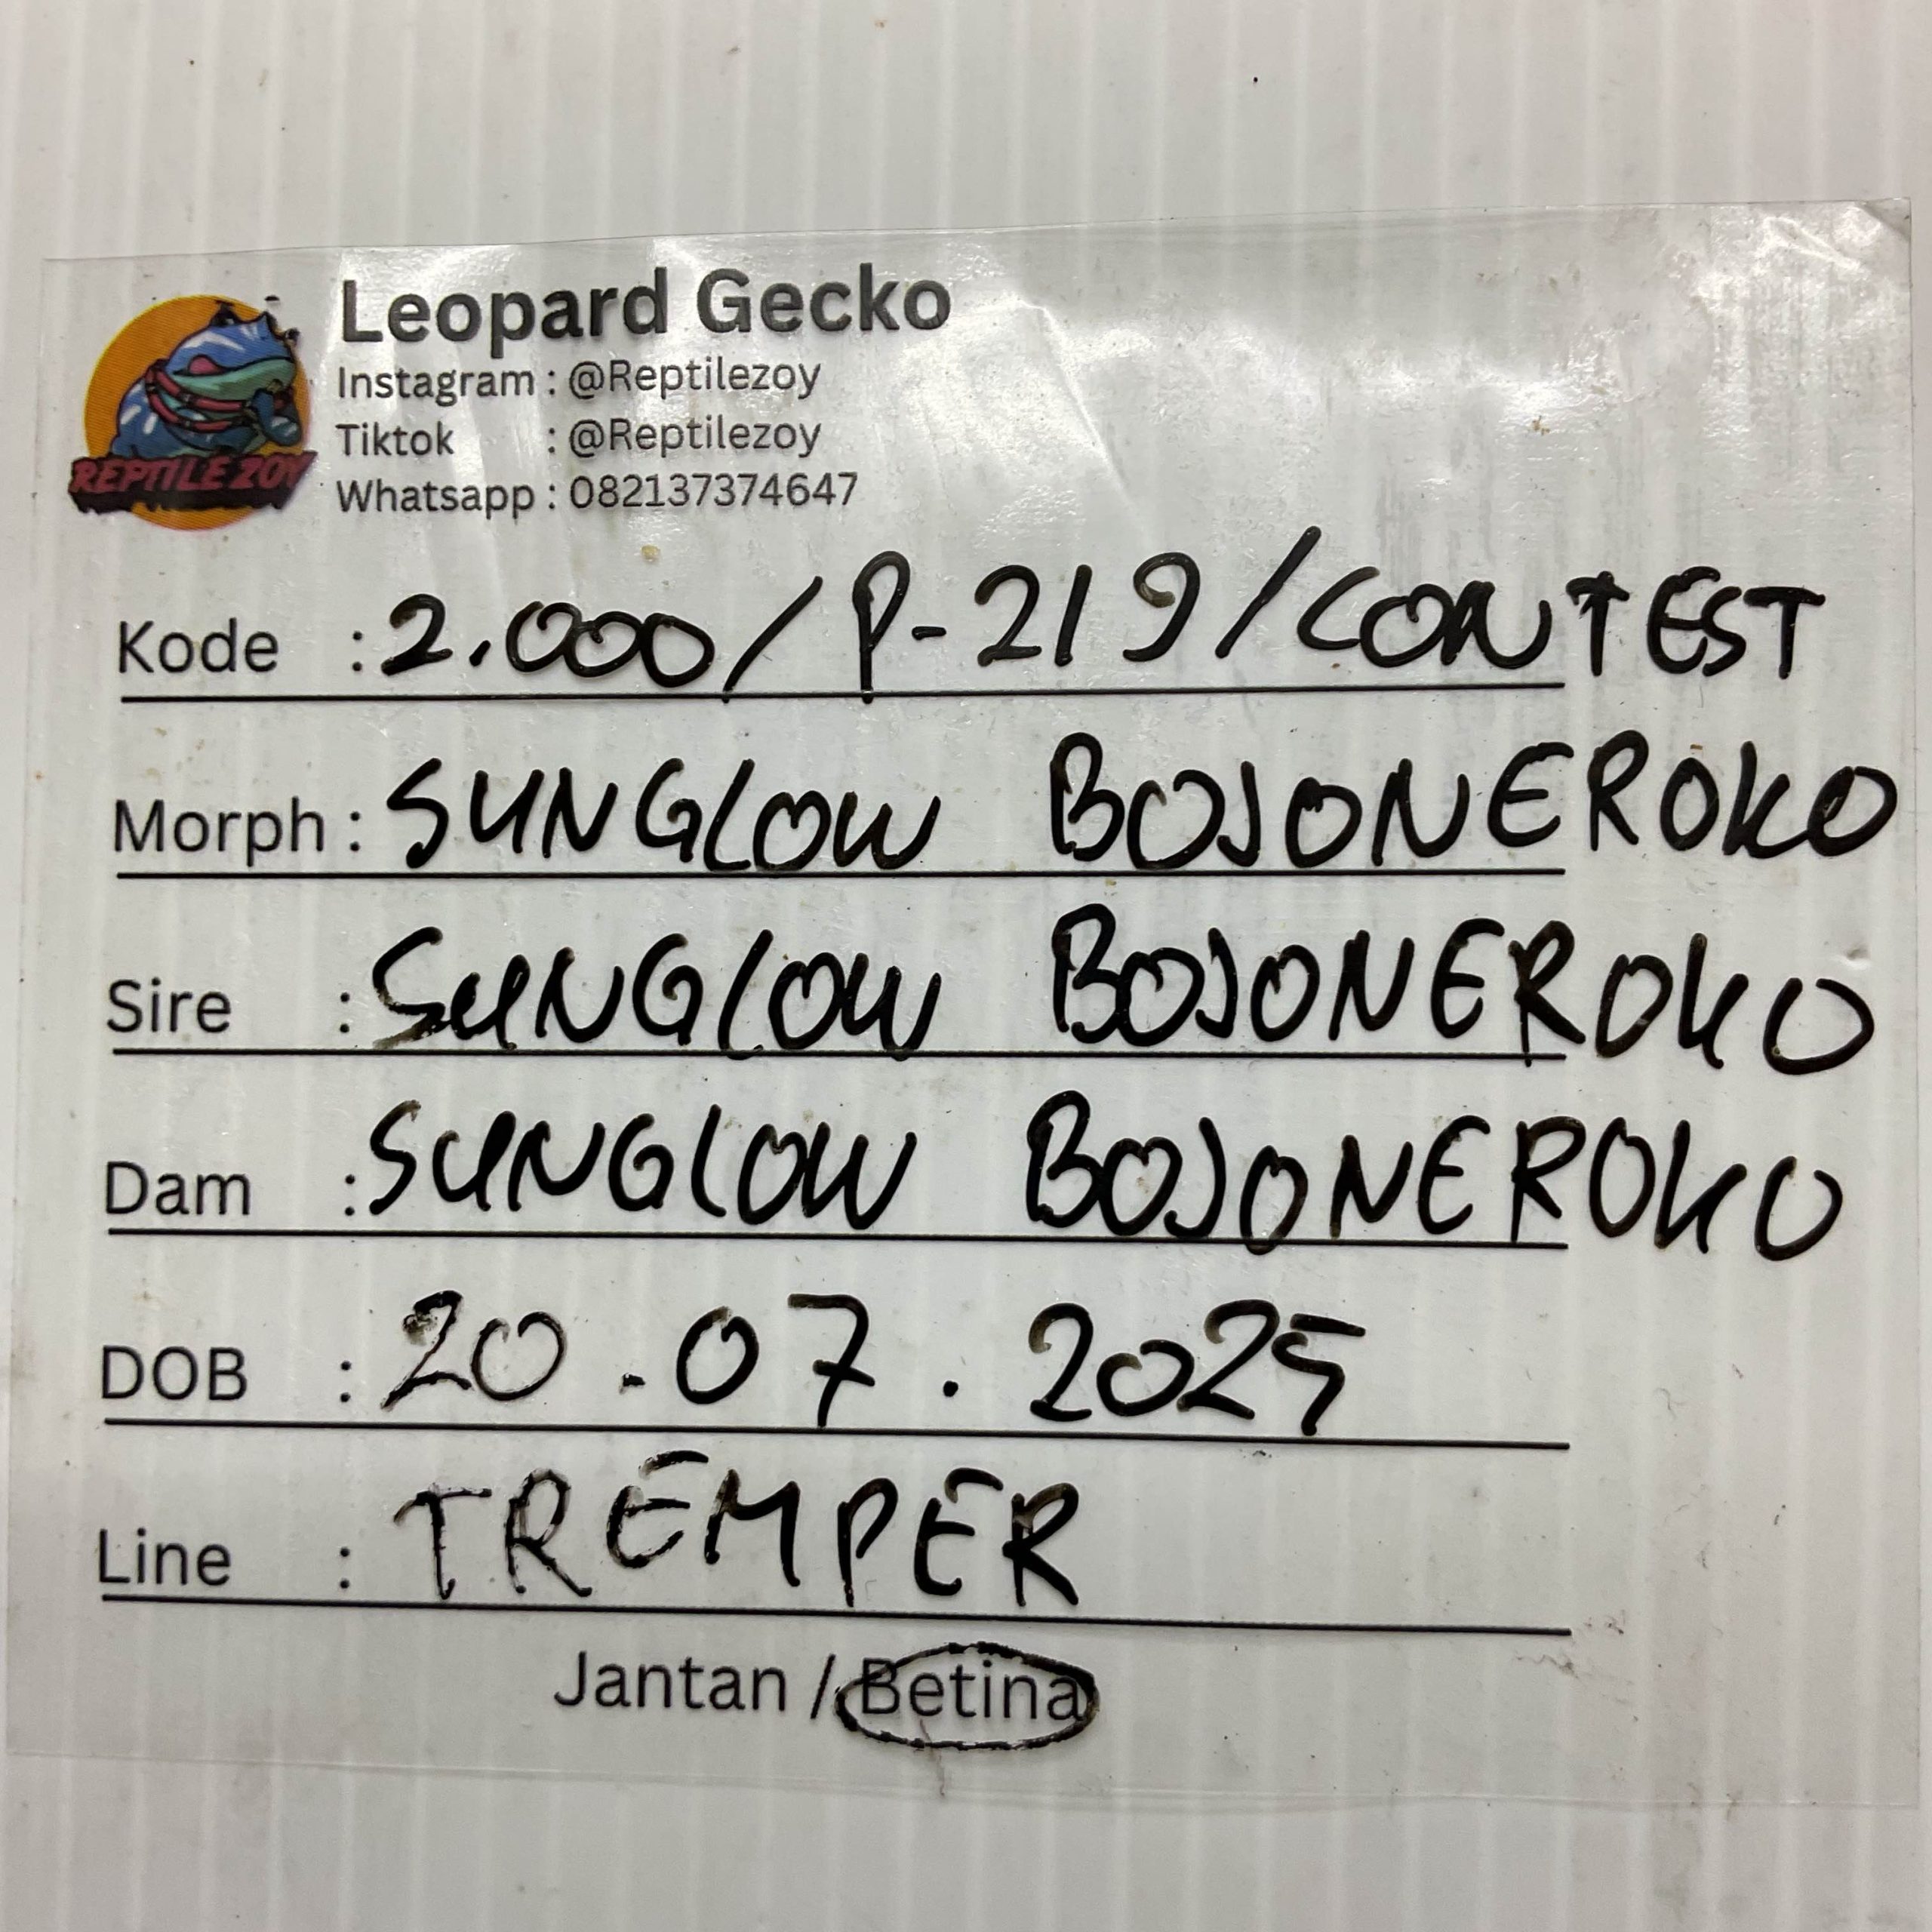 Leopard Gecko
Instagram : @Reptilezoy
Tiktok : @Reptilezoy
Whatsapp : 082137374647
REPTILE ZOY
Kode : 2.000/P-219/CONTEST
Morph : SUNGLOW BOJONEROKO
Sire : SUNGLOW BOJONEROKO
Dam : SUNGLOW BOJONEROKO
DOB : 20.07.2025
Line : TREMPER
Jantan / Betina